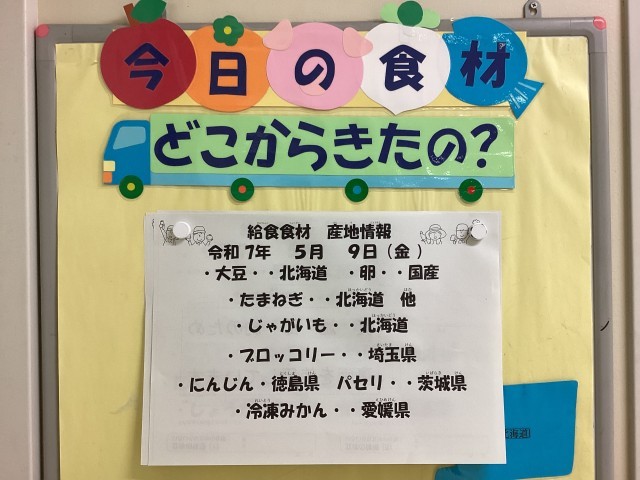 今日の食材
どこからきたの?
給食食材 産地情報
令和7年 5月 9日(金)
・大豆・・北海道 ・卵・・国産
・たまねぎ・・北海道 他
・じゃがいも・・北海道
・ブロッコリー・・埼玉県
・にんじん・徳島県 パセリ・・茨城県
・冷凍みかん・・愛媛県
北海道